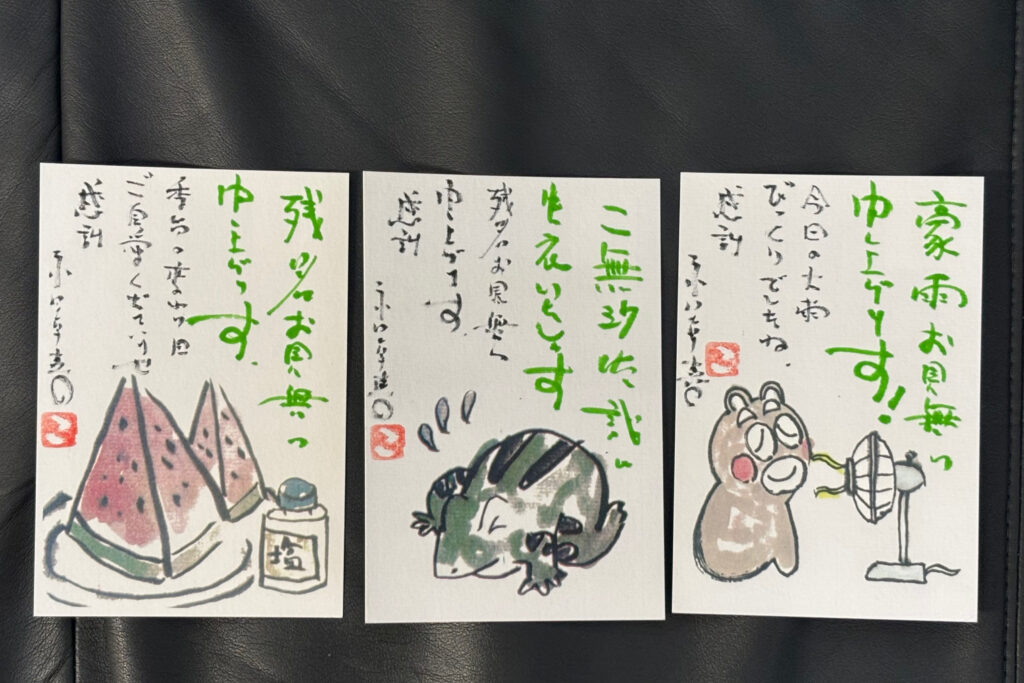 残暑お見舞い
申し上げます。
季節の変わり目
ご自愛くださいませ
感謝
塩
ご無沙汰
失礼いたします
残暑お見舞い
申し上げます。
感謝
豪雨お見舞い
申し上げます!
今日の大雨
びっくりでしたね。
感謝